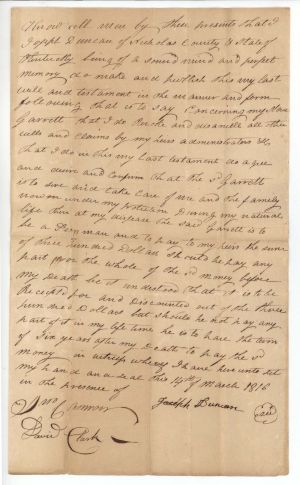 Know all men by these presents that I
Joseph Duncan of Nicholas County & State of
Kentucky being of a sound mind and perfect
memory do make and publish this my last
will and testament in the manner and form
following that is to say Concerning my Slave
Garrett that I do Revoke and disanull all other
wills and Claims by my heirs administrators &c
that I do in this my Last testament do agree
and desire and Confirm that the sd Garrett
is to live and take Care of me and the family
now under my during my natural
life then at my the said Garrett is to
be a freeman and to pay to my heirs the sum
of three hundred Dollars should he pay any
part from the whole of the sd money before
my Death be it understood that it is to be
the for and Discounted out of the three
hundred Dollars but should he not pay any
part of it in my life time he is to have the term
of Six years after my Death to pay the sd
money in witness whereof I have here unto set
my hand and seal this 14th of March 1816
in the presence of
Joseph Duncan seal
David Clark